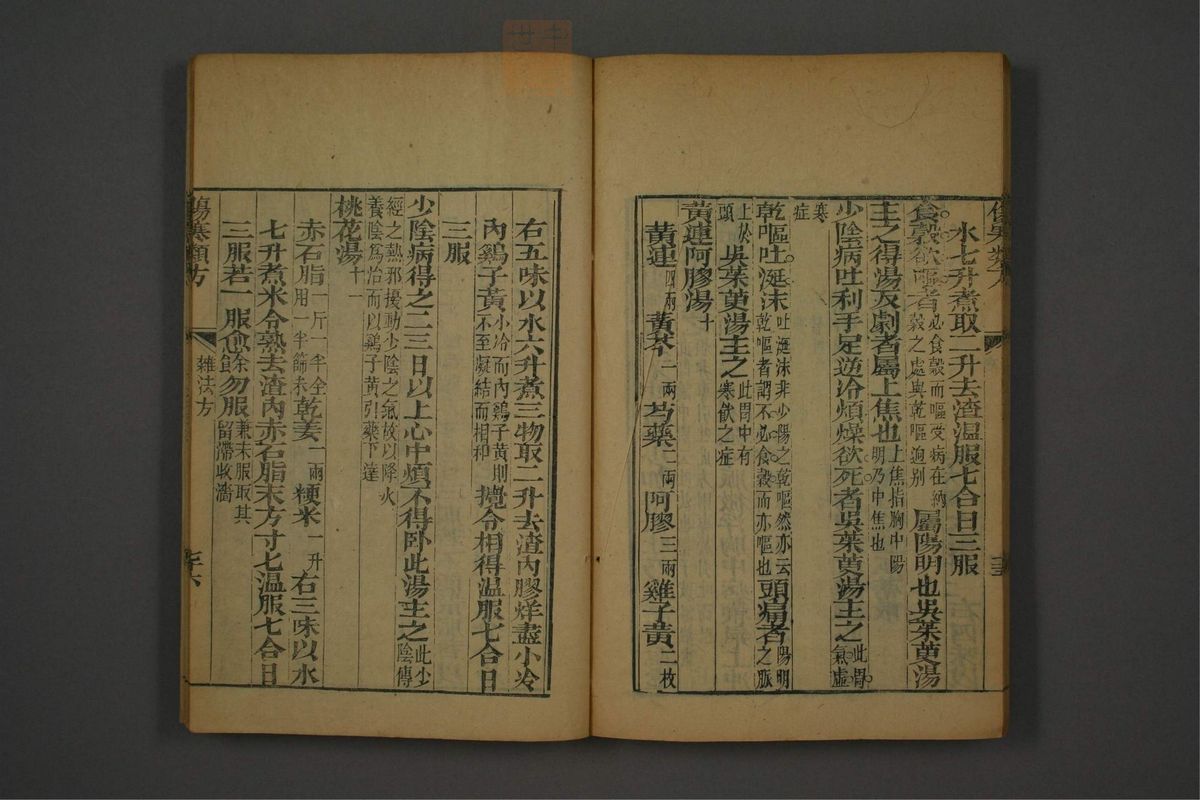 水七升煮取二升去渣温服七合日三服
食穀欲嘔者必食穀而嘔受病在納穀之處與乾嘔迥别屬陽明也吳茱萸湯
主之得湯反劇者屬上焦也上焦指胸中陽明乃中焦也
少陰病吐利手足逆冷煩燥欲死者吳茱萸湯主之此胃氣虛
寒症
乾嘔吐涎沫吐涎沫非少陽之乾嘔然亦云乾嘔者謂不必食穀而亦嘔也頭痛者陽明之脈
上於頭吳茱萸湯主之此胃中有寒飲之症
黃連阿膠湯十
黃連四兩黃芩一兩芍藥二兩阿膠三兩雞子黃二枚
右五味以水六升煮三物取二升去渣內膠烊盡小冷
內鷄子黃小冷而內鷄子黃則不至凝結而相和攪令相得温服七合日
三服
少陰病得之二三日以上心中煩不得卧此湯主之此少陰傳
經之熱邪擾動少陰之氣故以降火養陰爲治而以鷄子黃引藥下達
桃花湯十一
赤石脂一斤一半全用一半篩末乾姜一兩粳米一升右三味以水
七升煮米令熟去渣內赤石脂末方寸匕温服七合日
三服若一服愈餘勿服兼末服取其留滯收澁
傷寒類方 雜法方 三六